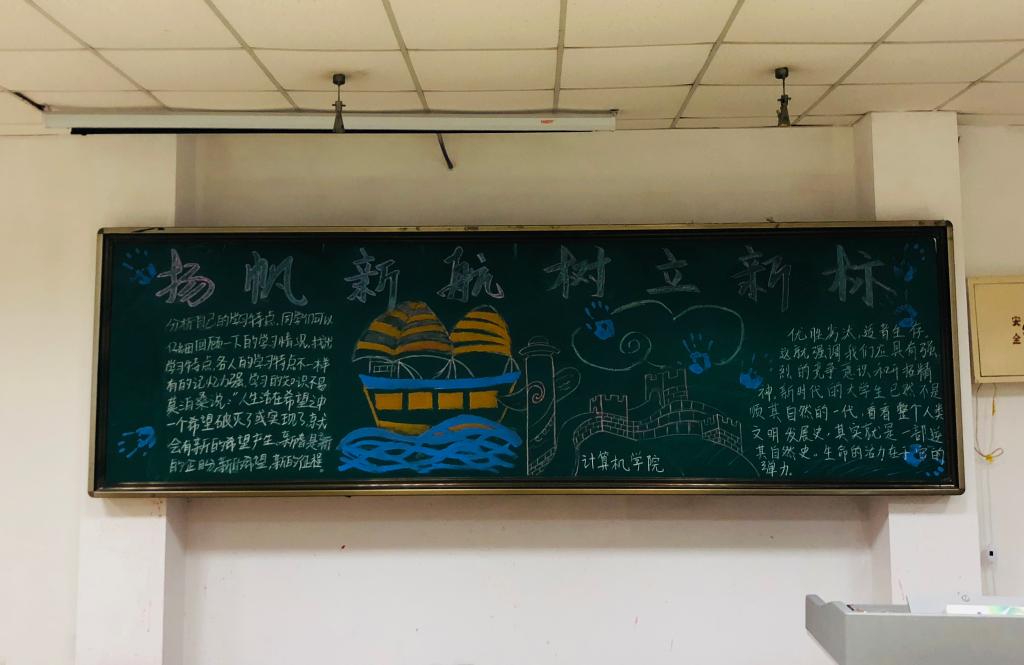 扬帆新航树立新标
分析自己的学习特点,同学们可以
仔细回顾一下的学习情况,找出
学习特点。各人的学习特点不一样
有的记忆力强,学习的知识不易
莫泊桑说:"人生活在希望之中
一个希望破灭了或实现了,就
会有新的希望产生。新春是新
的正盼,新的希望,新的征程
计算机学院
优胜劣汰,适者生存。
这就强调我们应具有强
烈的竞争意识和开拓精
神,新时代的大学生已然不是
顺其自然的一代,看看整个人类
文明发展史,其实就是一部逆
其自然史。生命的活力在于它的
弹力.
安
全